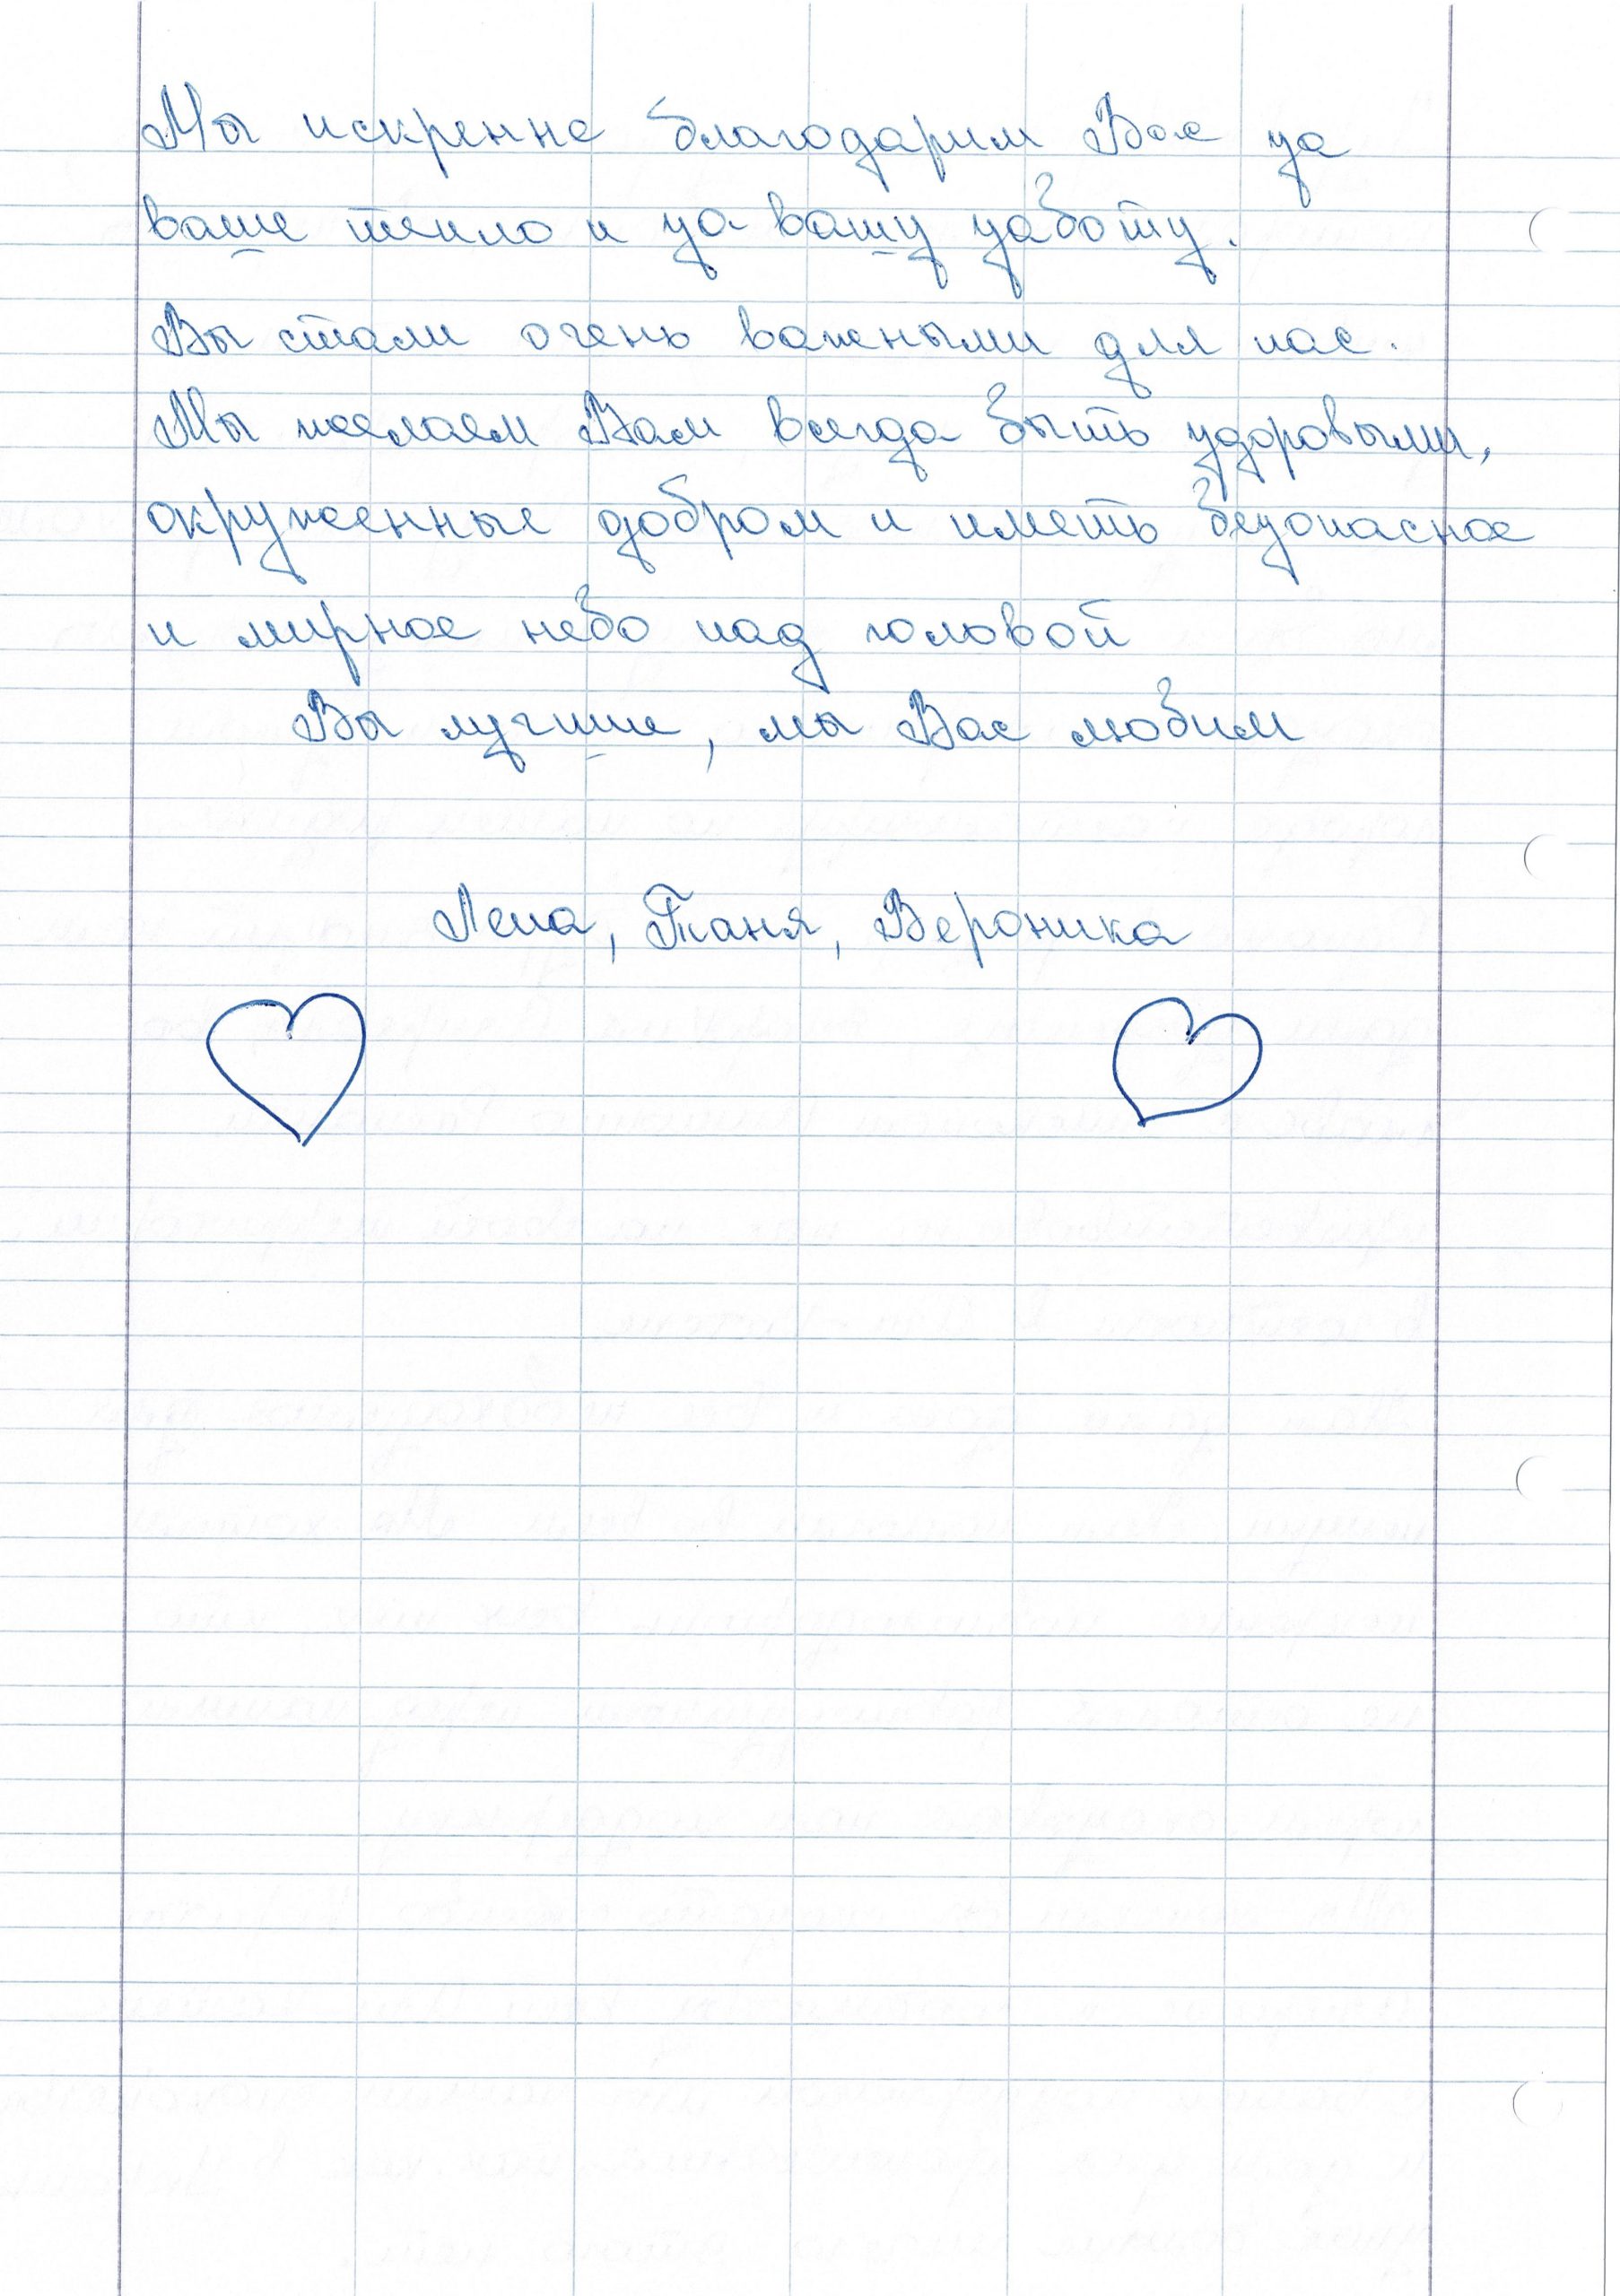 Мы искренне благодарим Вас за
ваше тепло и за вашу заботу.
Вы стали очень важными для нас.
Мы желаем Вам всегда быть здоровыми,
окруженные добром и иметь безопасное
и мирное небо над головой
Вы лучшие, мы Вас любим
Лена, Таня, Вероника